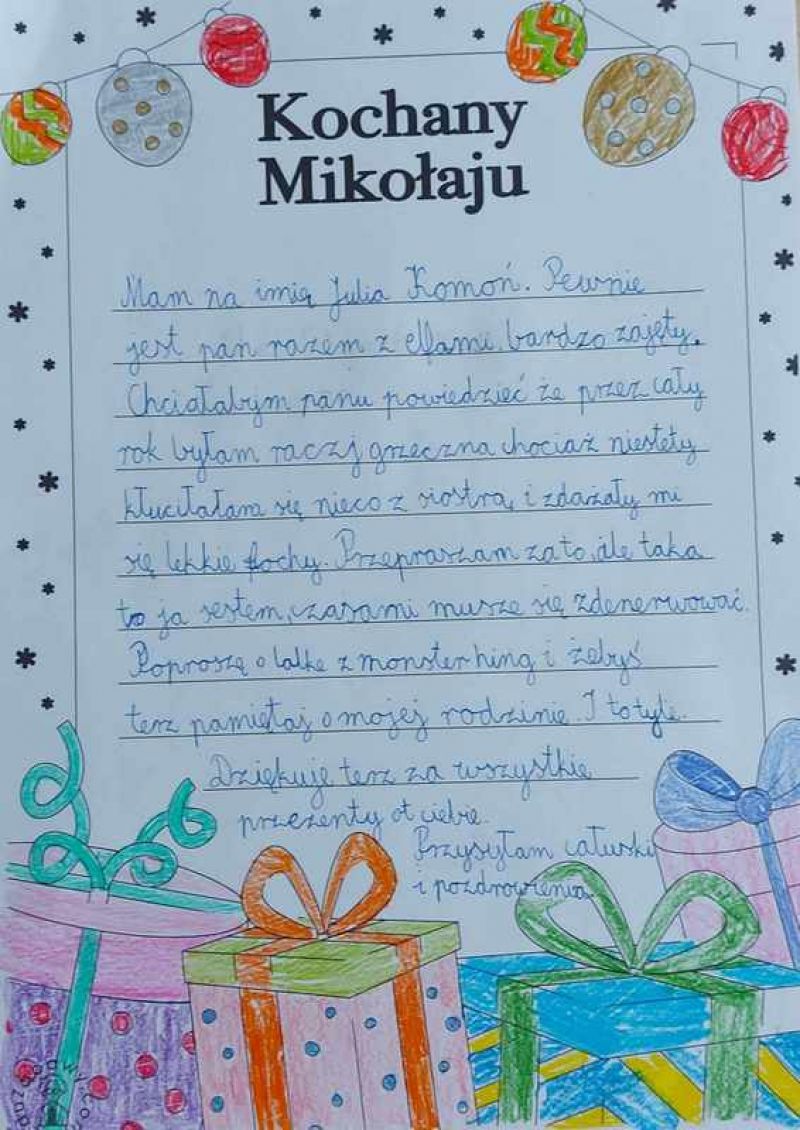 Kochany
Mikołaju
Mam na imię Julia Komoń. Pewnie
jest pan razem z elfami bardzo zajęty.
Chciałabym panu powiedzieć że przez cały
rok byłam raczj grzeczna chociaż niestety
kłuciłałam się nieco z siostrą i zdażały mi
się lekkie fochy. Przepraszam za to, ale taka
to ja jestem, czasami musze się zdenerwować.
Poproszę o lalke z monster hing i żebyś
terz pamiętaj o mojej rodzinie. I to tyle.
Dziękuję terz za wszystkie
przezenty ot ciebie.
Przysyłam całuski
i pozdrowienia